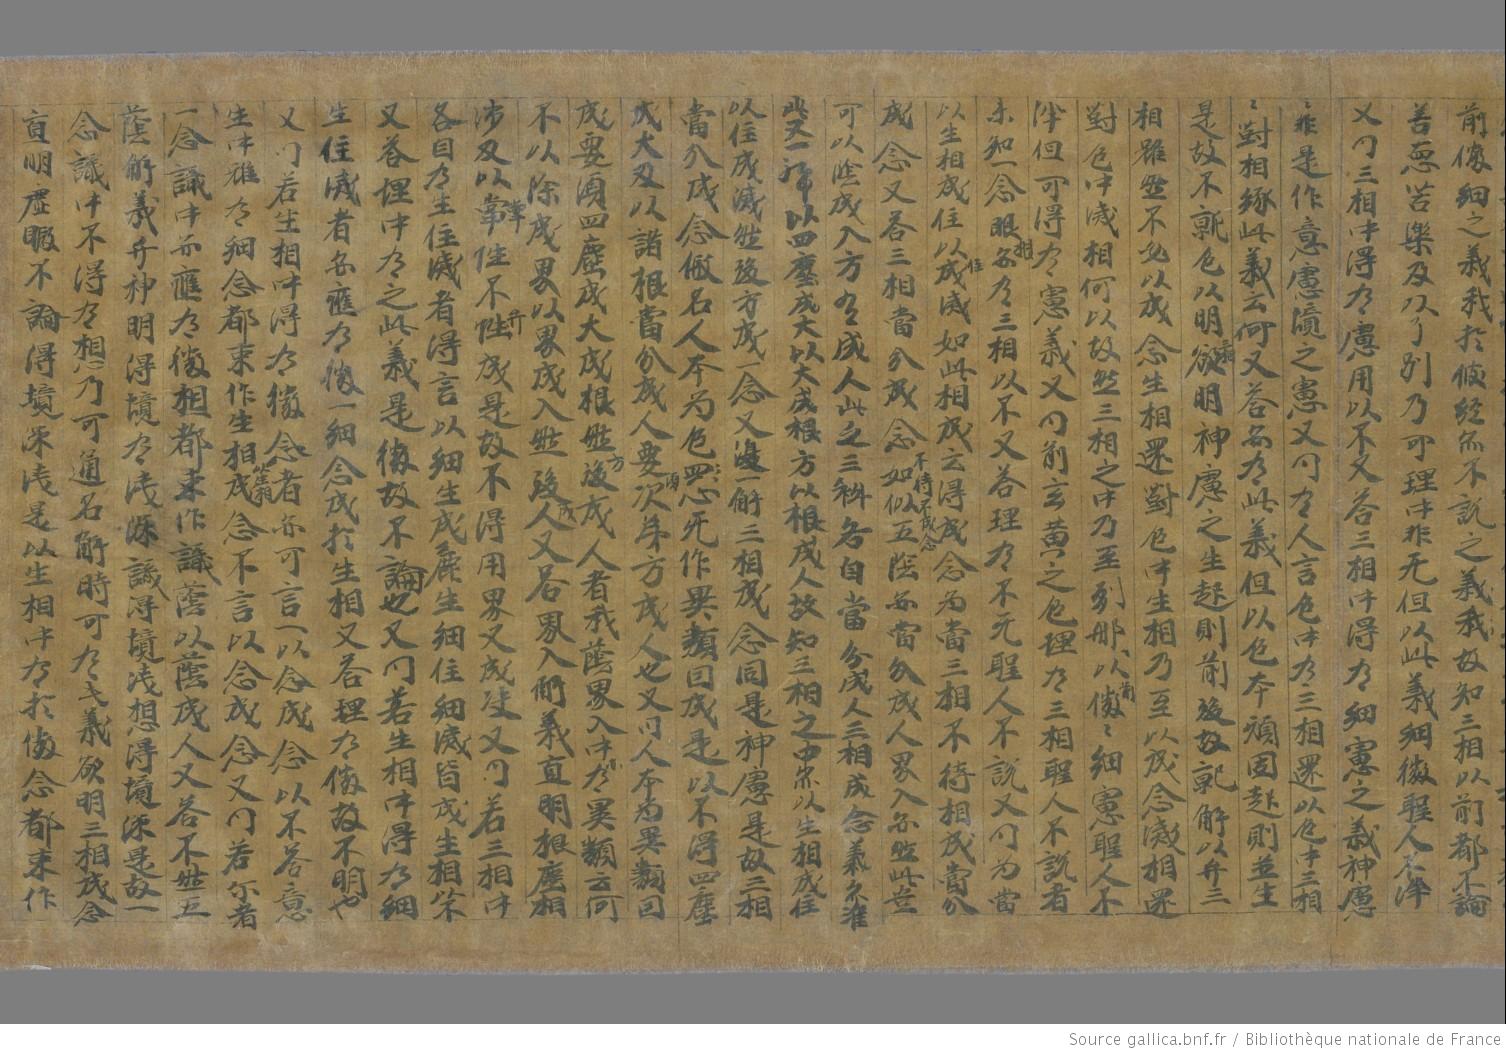 前像細之義我於彼経亦不說之義我故知三相以前都不論
善惡苦樂及以了別乃可理中非无但以此義細微聖人不泮
又问三相中得有慮用以不又答三相中得有細慮之義神慮
〻非是作意慮漬之慮又问有人言色中有三相還以色中三相
〻對相緣此義云何又答亦有此義但以色本頑固起則並生
是故不就色以明欲明神慮之生起則前後故就解以并三
相雖然不免以成念生相還對色中生相乃至以成念滅相還
對色中滅相何以故然三相之中乃至刹那以微〻細慮聖人不
泮但可得有慮義又问前玄黄之色理有三相聖人不說者
未知一念眼亦有三相以不又答理有不无聖人不說又问为當
以生相成住以成滅如此相成云得成念为當三相不待相成當分
成念又答三相當分成念如似五陰亦當分成人界入亦然此豈
可以陰成入方有成人此之三科各自當分成人三相成念義亦准
此又一解以四塵成大以大成根方以根成人故知三相之中亦以生相成住
以住成滅然後方成一念又復一解三相成念同是神慮是故三相
當分成念假名人本为色心作異類因成是以不得四塵
成大及以諸根當分成人要次第方成人也又问人本为異類因
成要須四塵成大成根然後成人者我蔭界入中有異類云何
不以除成界以界成入然後人又答界入解義直明根塵相
涉及以常性不性成是故不得用界又成又问若三相中
各自有生住滅者得言以細生成麁生細住細滅皆成生相
又答理中有之此義是微故不論也又问若生相中得有細
生住滅者亦應有微一細念成於生相又答理有微故不明也
又问若生相中得有微念者亦可言一以念成念以不答意
生中雖有細念都束作生相成念不言以念成念又问若尔者
一念識中亦應有微相都束作識蔭以蔭成人又答不然五
蔭解義并神明得境有浅深識得境浅想得境深是故一
念識中不得有想乃可通名解時可有之義欲明三相成念
直明虛假不論得境深浅是以生相中有於微念都束作
Source gallica.bnf.fr / Bibliothèque nationale de France